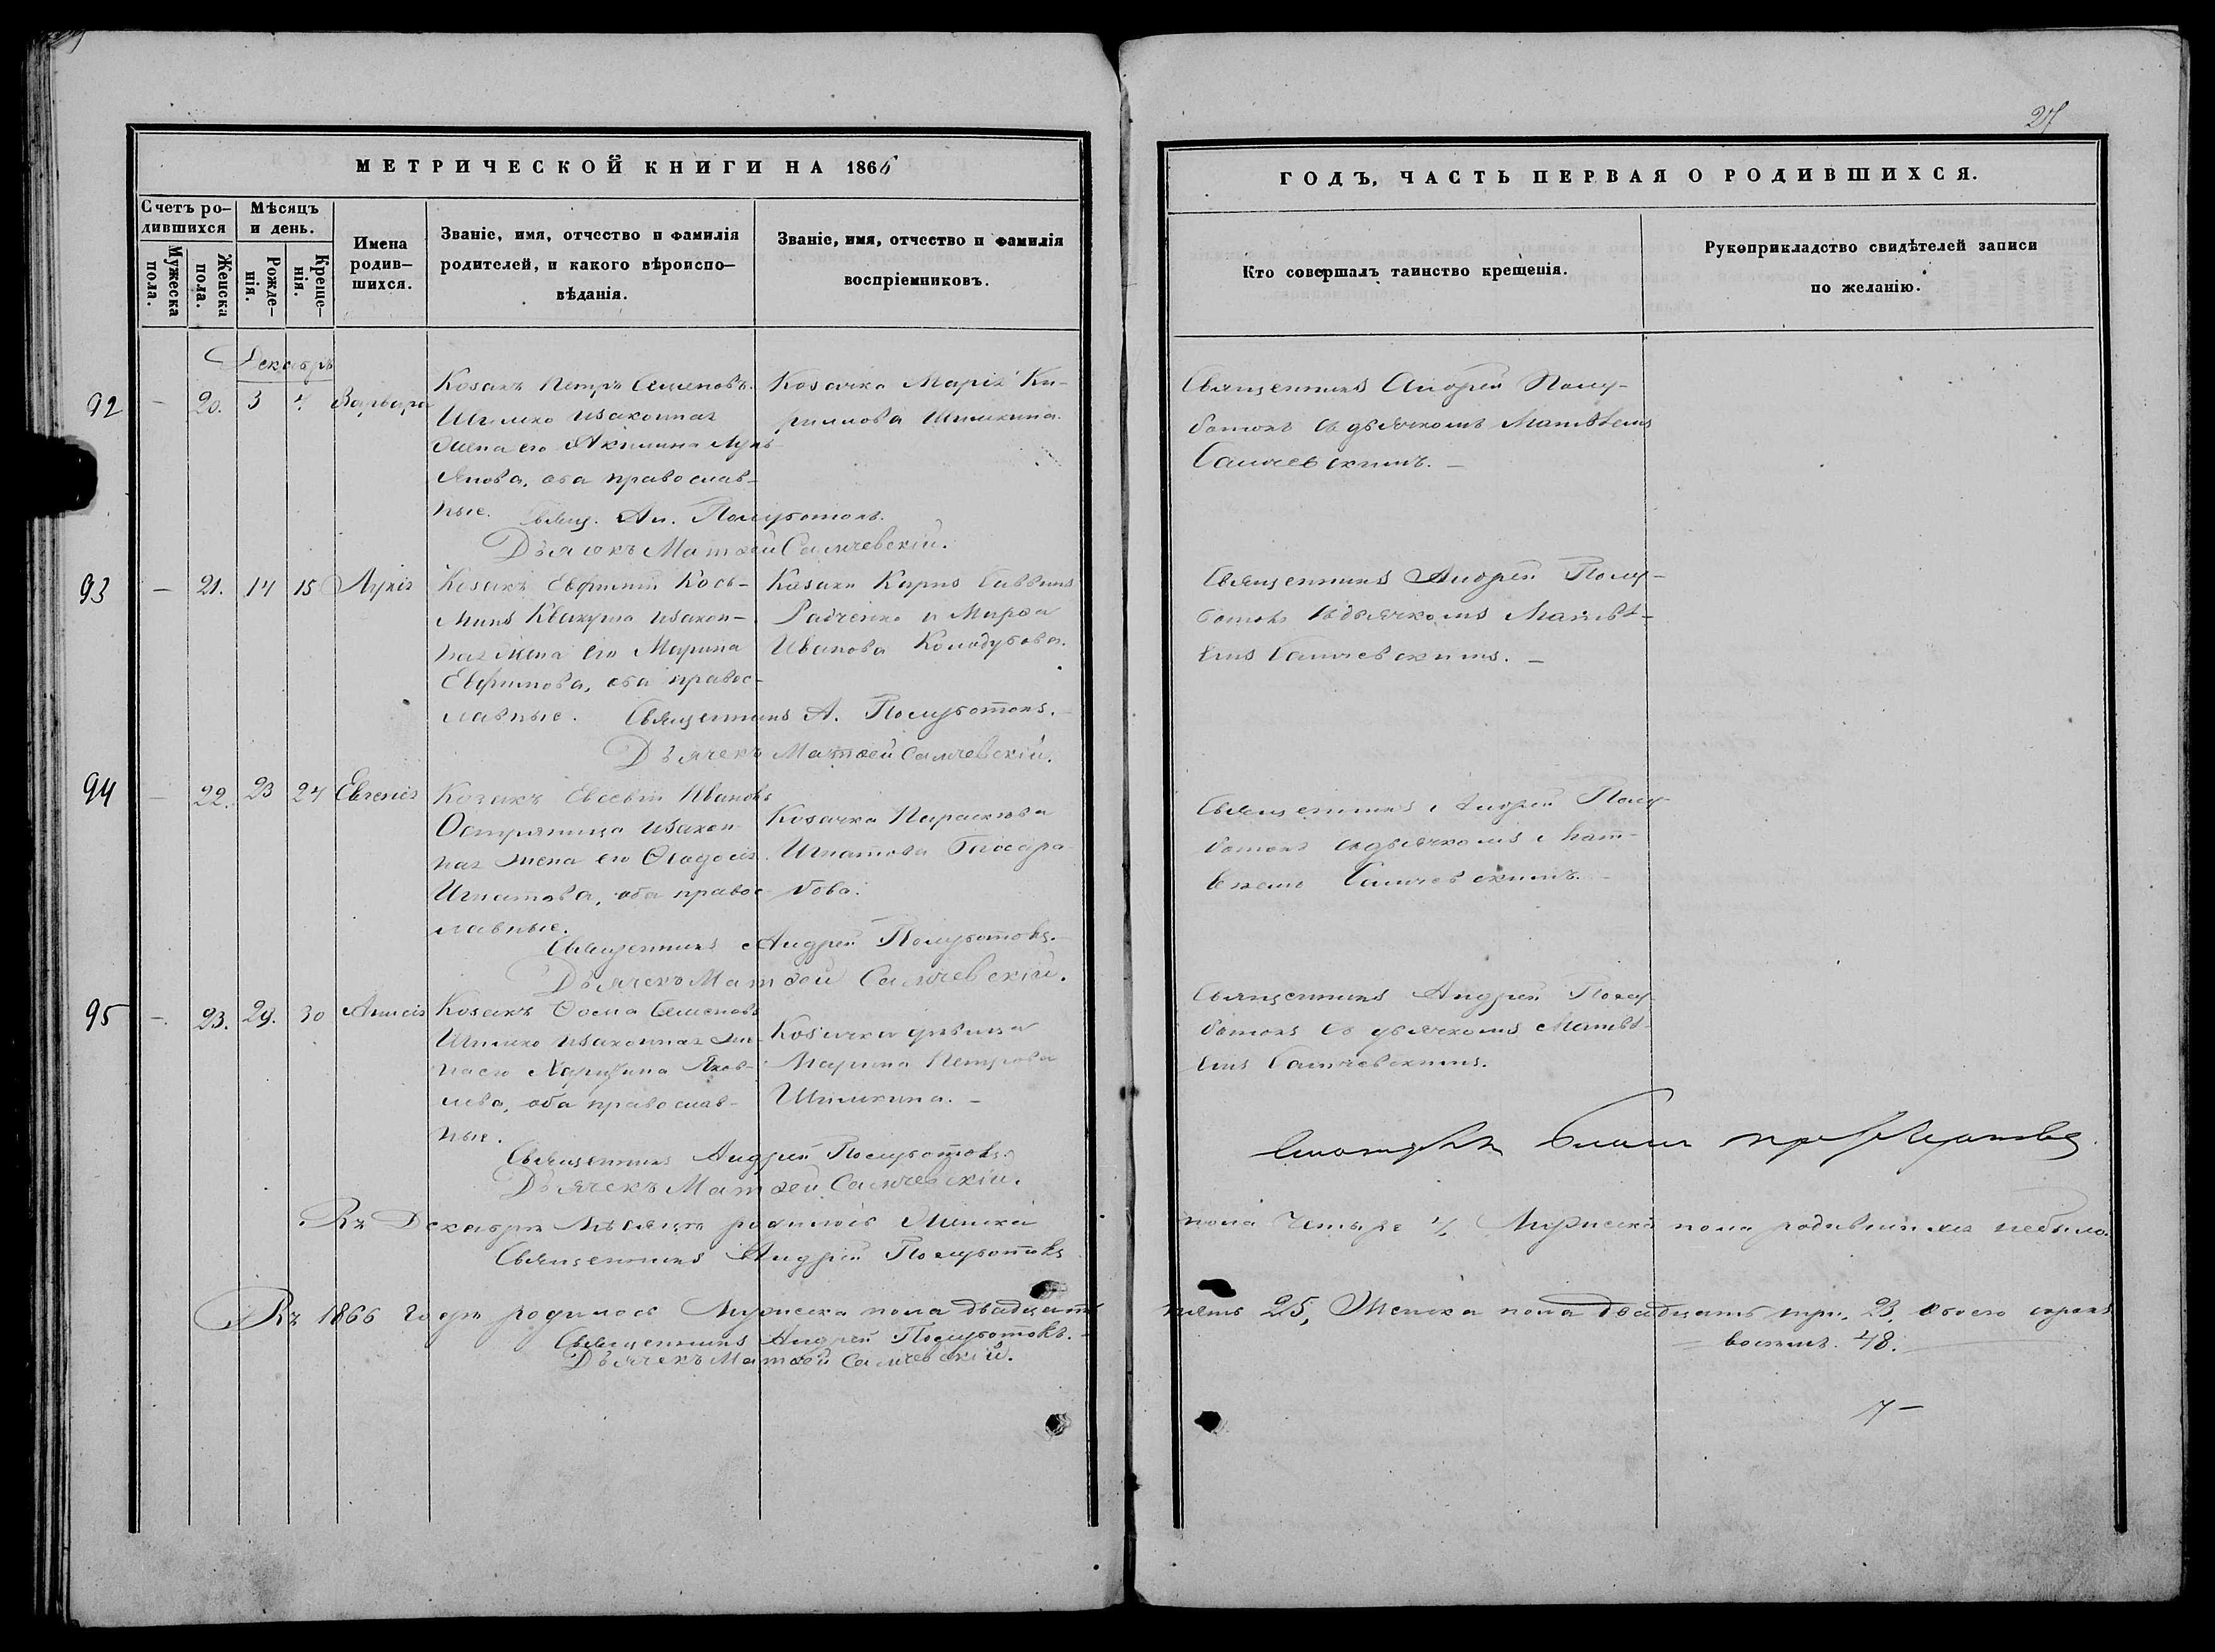 27
МЕТРИЧЕСКОЙ КНИГИ НА 1866
ГОДЪ, ЧАСТЬ ПЕРВАЯ О РОДИВШИХСЯ.
Счетъ ро-
дившихся
Мужеска пола.
Женска пола.
Мѣсяцъ
и день.
Рожде-
нія.
Креще-
нія.
Имена
родив-
шихся.
Званіе, имя, отчество и фамилія
родителей, и какого вѣроиспо-
вѣданія.
Званіе, имя, отчество и фамилія
воспріемниковъ.
Кто совершалъ таинство крещенія.
Рукоприкладство свидѣтелей записи
по желанію.
Декабрь
92 - 20. 3 4 Варвара
Козакъ Петръ Семеновъ
Шишко изаконная
жена его Акилина Лукь-
янова, оба православ-
ные. Свящ. Ан. Полуботокъ.
Дьячекъ Матѳей Самчевскій.
Козачка Марія Ки-
рилова Шишкина.
Священникъ Андрей Полу-
ботокъ съ дьячкомъ Матвѣемъ
Самчевскимъ. -
93 - 21. 14 15 Лукія
Козакъ Евфимій Кось-
минъ Квакуша изакон-
ная жена его Марина
Евфимова, оба правос-
лавные. Священникъ А. Полуботокъ.
Дьячекъ Матѳей Самчевскій.
Козаки Карпъ Саввинъ
Радченко и Марѳа
Иванова Колодубова.
Священникъ Андрей Полу-
ботокъ съ дьячкомъ Матвѣ-
емъ Самчевскимъ. -
94 - 22. 23 24 Евгенія
Козакъ Евсевій Ивановъ
Остряница изакон
ная жена его Ѳеодосія
Игнатова, оба правос-
лавные.
Священникъ Андрей Полуботокъ.
Дьячекъ Матѳей Самчевскій.
Козачка Параскева
Игнатова
Священникъ Андрей Полу-
ботокъ съ дьячкомъ Мат-
веемъ Самчевскимъ.
95 - 23. 29. 30 Анисія
Козакъ Ѳома Семеновъ
Шишко изаконная же-
на его Харитина Яков-
лева, оба православ-
ные.
Священникъ Андрей Полуботокъ.
Дьячекъ Матѳей Самчевскій.
Козачка дѣвица
Марина Петрова
Шишкина. -
Священникъ Андрей Полу-
ботокъ съ дьячкомъ Матвѣ-
емъ Самчевскимъ.
Въ Декабрѣ мѣсяцѣ родилось Женска пола Четыре 4, Мужеска пола родившихся небыло.
Священникъ Андрей Полуботокъ
Въ 1866 Годѣ родилось Мужеска пола двадцать пять 25, Женска пола двадцать три. 23, обоего сорокъ
восемь. 48.
Священникъ Андрей Полуботокъ.
Дьячекъ Матѳей Самчевскій.